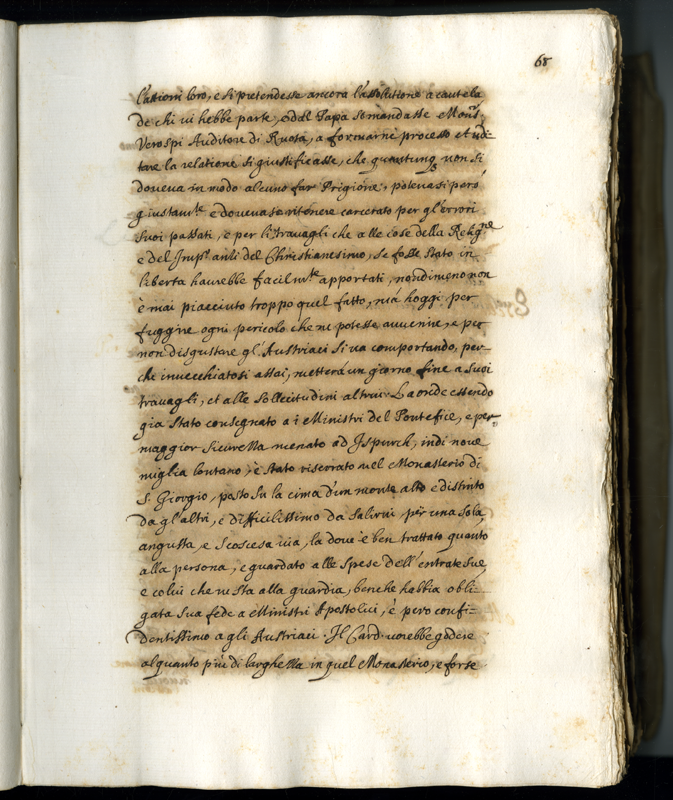 68
l'attioni loro, e si pretendesse ancora l'assolutione a cautela
de chi ui hebbe parte, e dal Papa si mandasse Mons.r
Verospi Auditore di Ruota, a formarne processo et
tare la relatione si giustificasse, che quantunq non si
doueua in modo alcuno far Prigione, poteuasi però
giustam.te e doueuasi ritenere carcerato per gl'errori
suoi passati, e per li trauagli che alle cose della Relig.ne
e del Imp.o anzi del Christianesimo, se fosse stato in
liberta haurebbe facilm.te apportati, nondimeno non
è mai piacciuto troppo quel fatto, mà hoggi per
fuggire ogni pericolo che ne potesse auuenire, e per
non disgustare gl'Austriaci si ua comportando, per
che inuecchiatosi assai, metterà un giorno fine a suoi
trauagli, et alle sollecitudini altrui. Laonde essendo
già stato consegnato a i Ministri del Pontefice, e per
maggior sicurezza menato ad Ispurch, indi noue
miglia lontano, è stato riserrato nel Monasterio di
S. Giorgio, posto su la cima d'un monte alto e distinto
da gl'altri, e difficilissimo da salirui, per una sola,
angusta, e scoscesa uia, la doue è ben trattato quanto
alla persona, e guardato alle spese dell'entrate sue,
e colui che resta alla guardia, benche habbia obli-
gata sua fede a Ministri Apostolici, è pero confi-
dentissimo a gli Austriaci. Il Card. uorebbe godere
alquanto più di larghezza in quel Monasterio, e forse